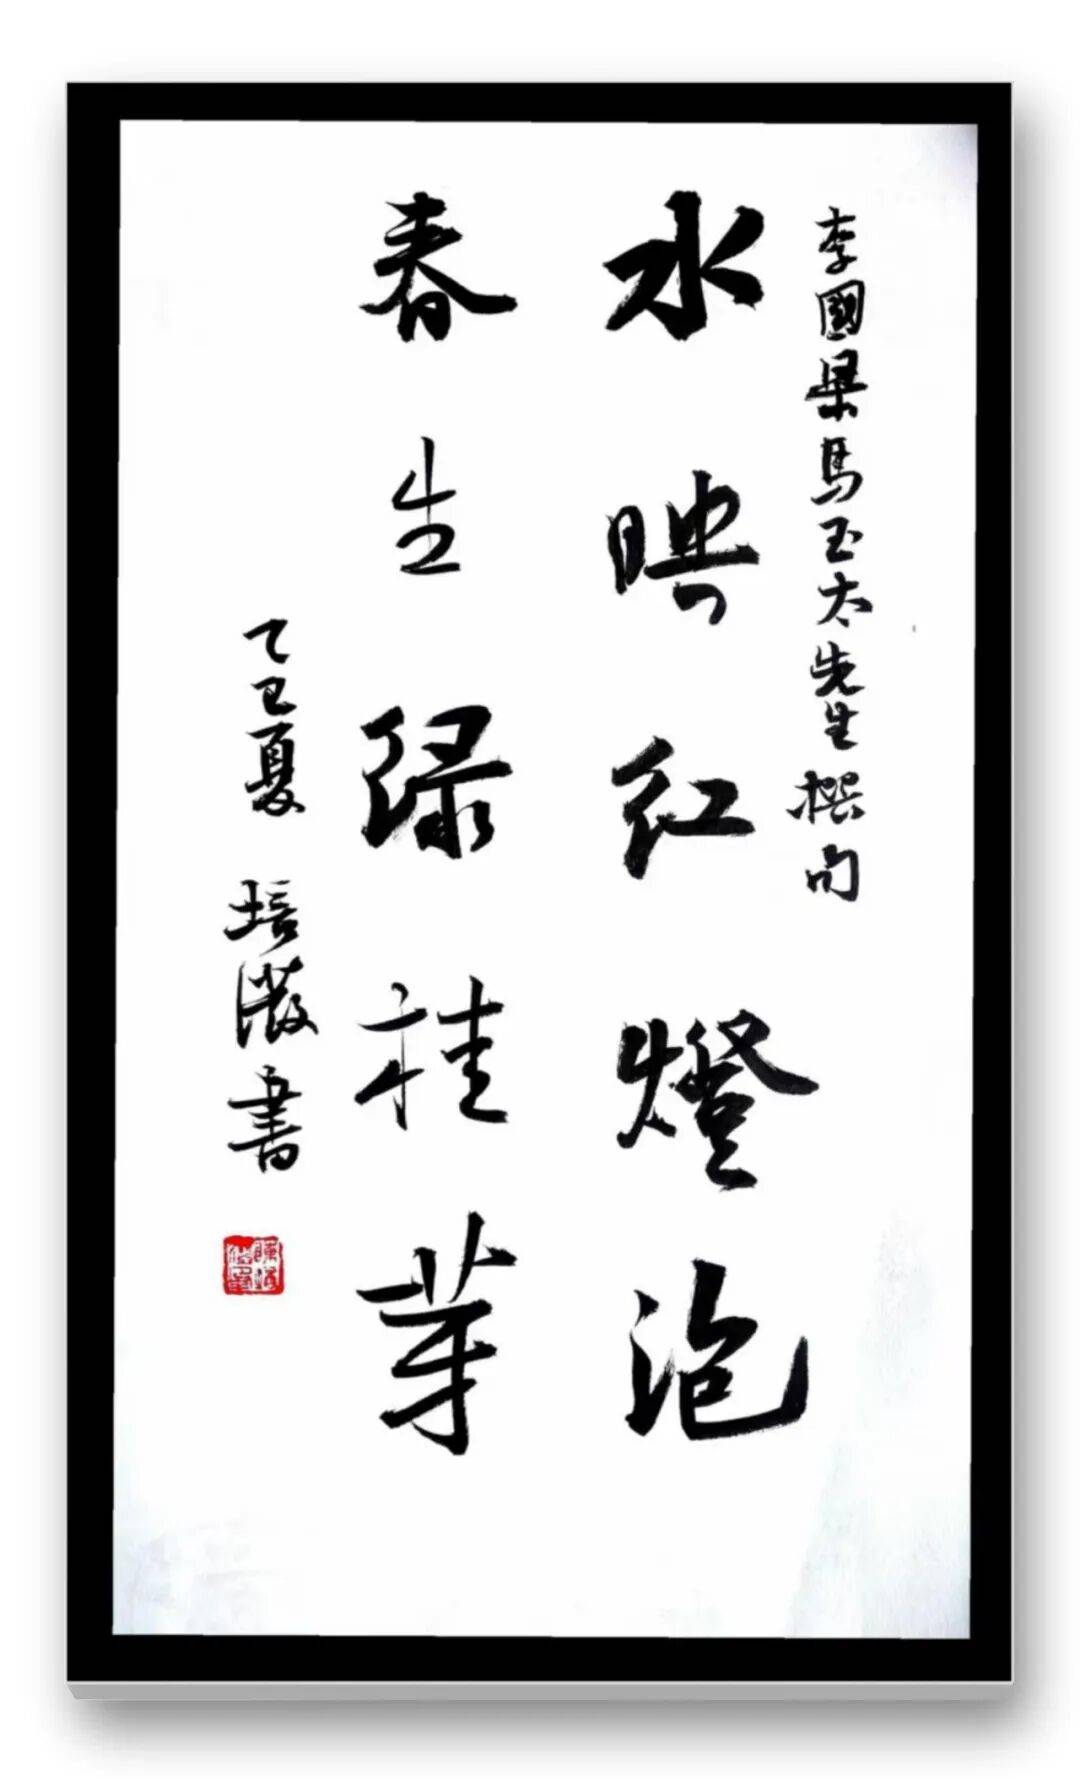 李國梁馬玉太先生撰句
水映红燈泡
春生绿桂芽
乙巳夏 培書